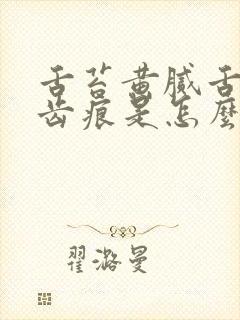 舌苔黄腻舌
齿痕是怎麼
翟潞曼